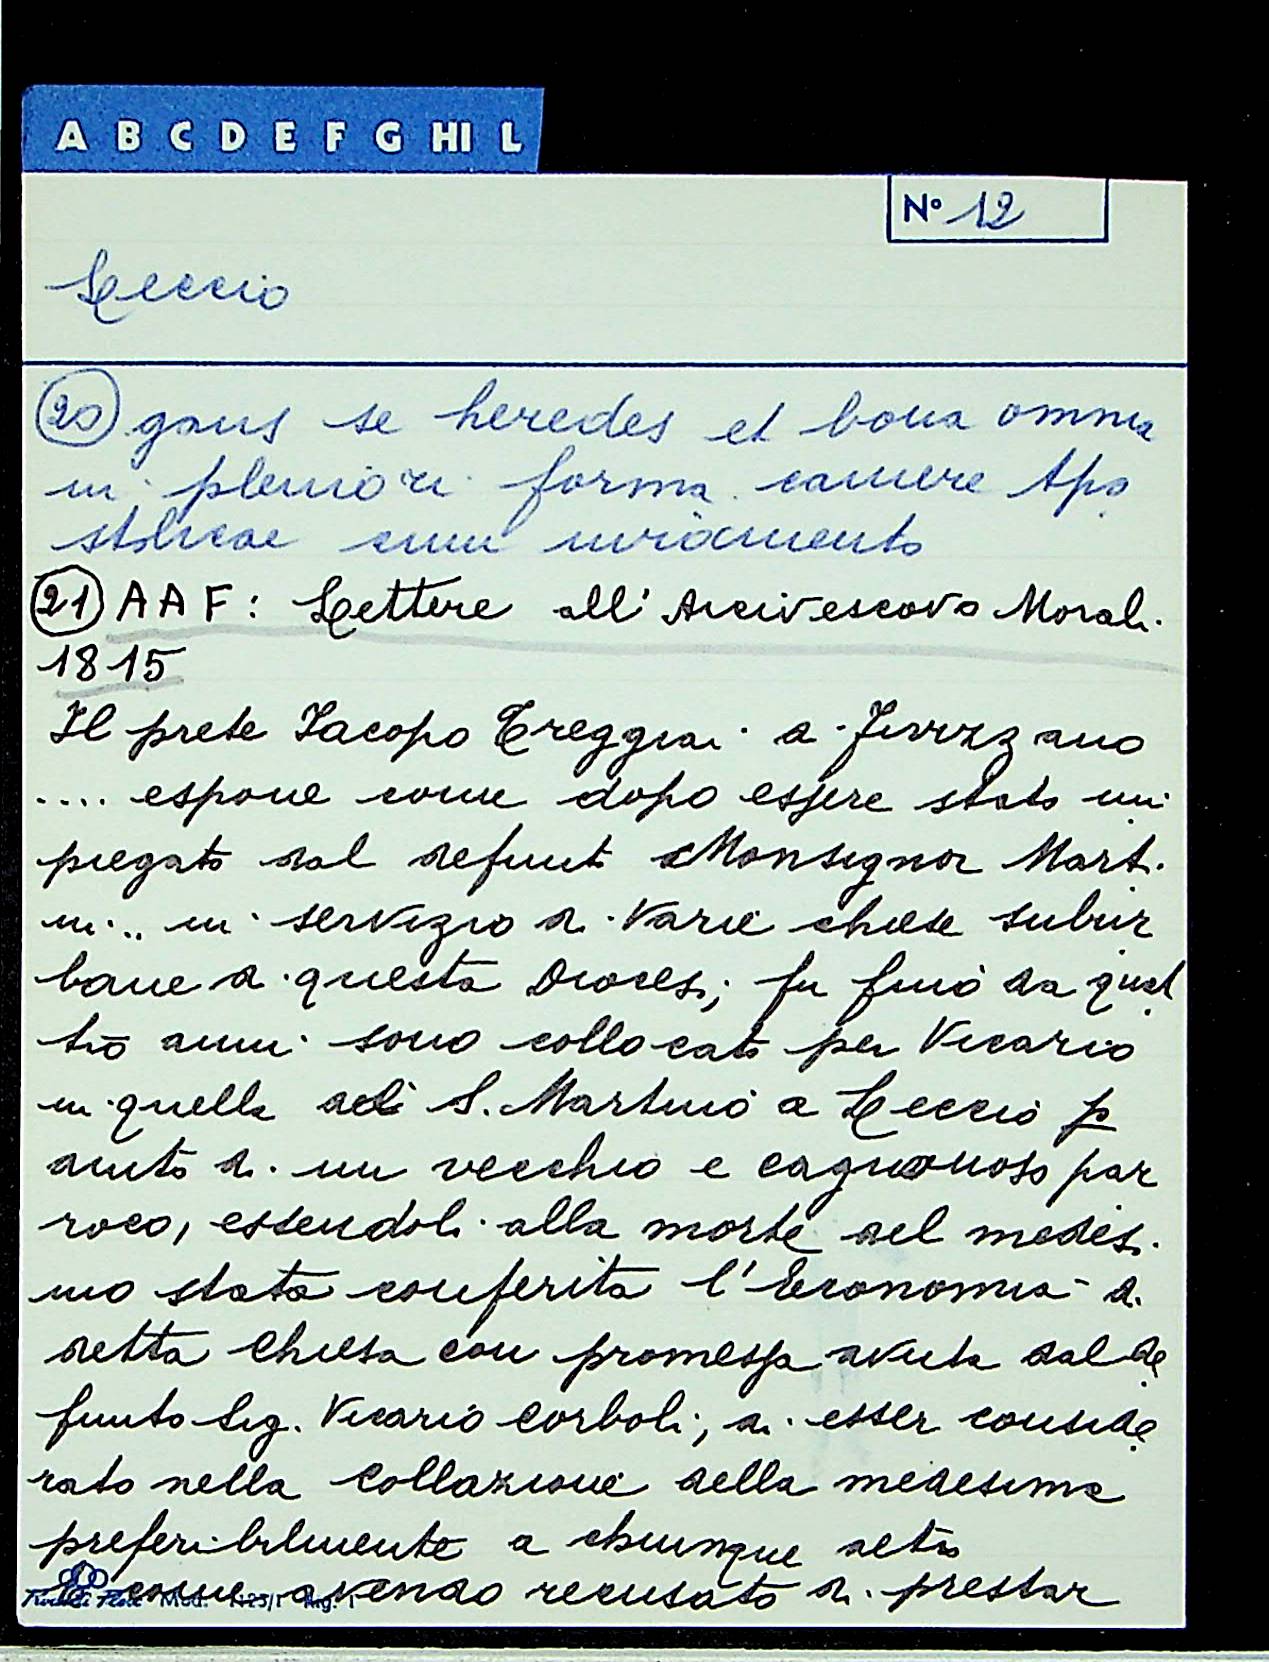 A B C D E F G HI L
N° 12
Leccio
20 gans se heredes et bona omnia
in pleniori forma camere Apo
stolicae cum iuramento
21 AAF: Lettere all'Arcivescovo Morali
1815
Il prete Iacopo Treggiai a
.... espone come dopo essere stato im
piegato dal defunto Monsignor Marti
ni... in servizio di varie chiese subur
bane di questa Diocesi; fu fino da quat
tro anni sono collocato per Vicario
in quella di S. Martino a Leccio p
aiuto di un vecchio e cagionoso par
roco, essendoli alla morte del medesi
mo stata conferita l'Economia di
detta Chiesa con promessa avuta dal de
funto Sig. Vicario Corboli; di esser conside
rato nella Collazione della medesima
preferibilmente a chiunque altro
come avendo recusato di prestar
Mod. 1125/1 Rig. 1